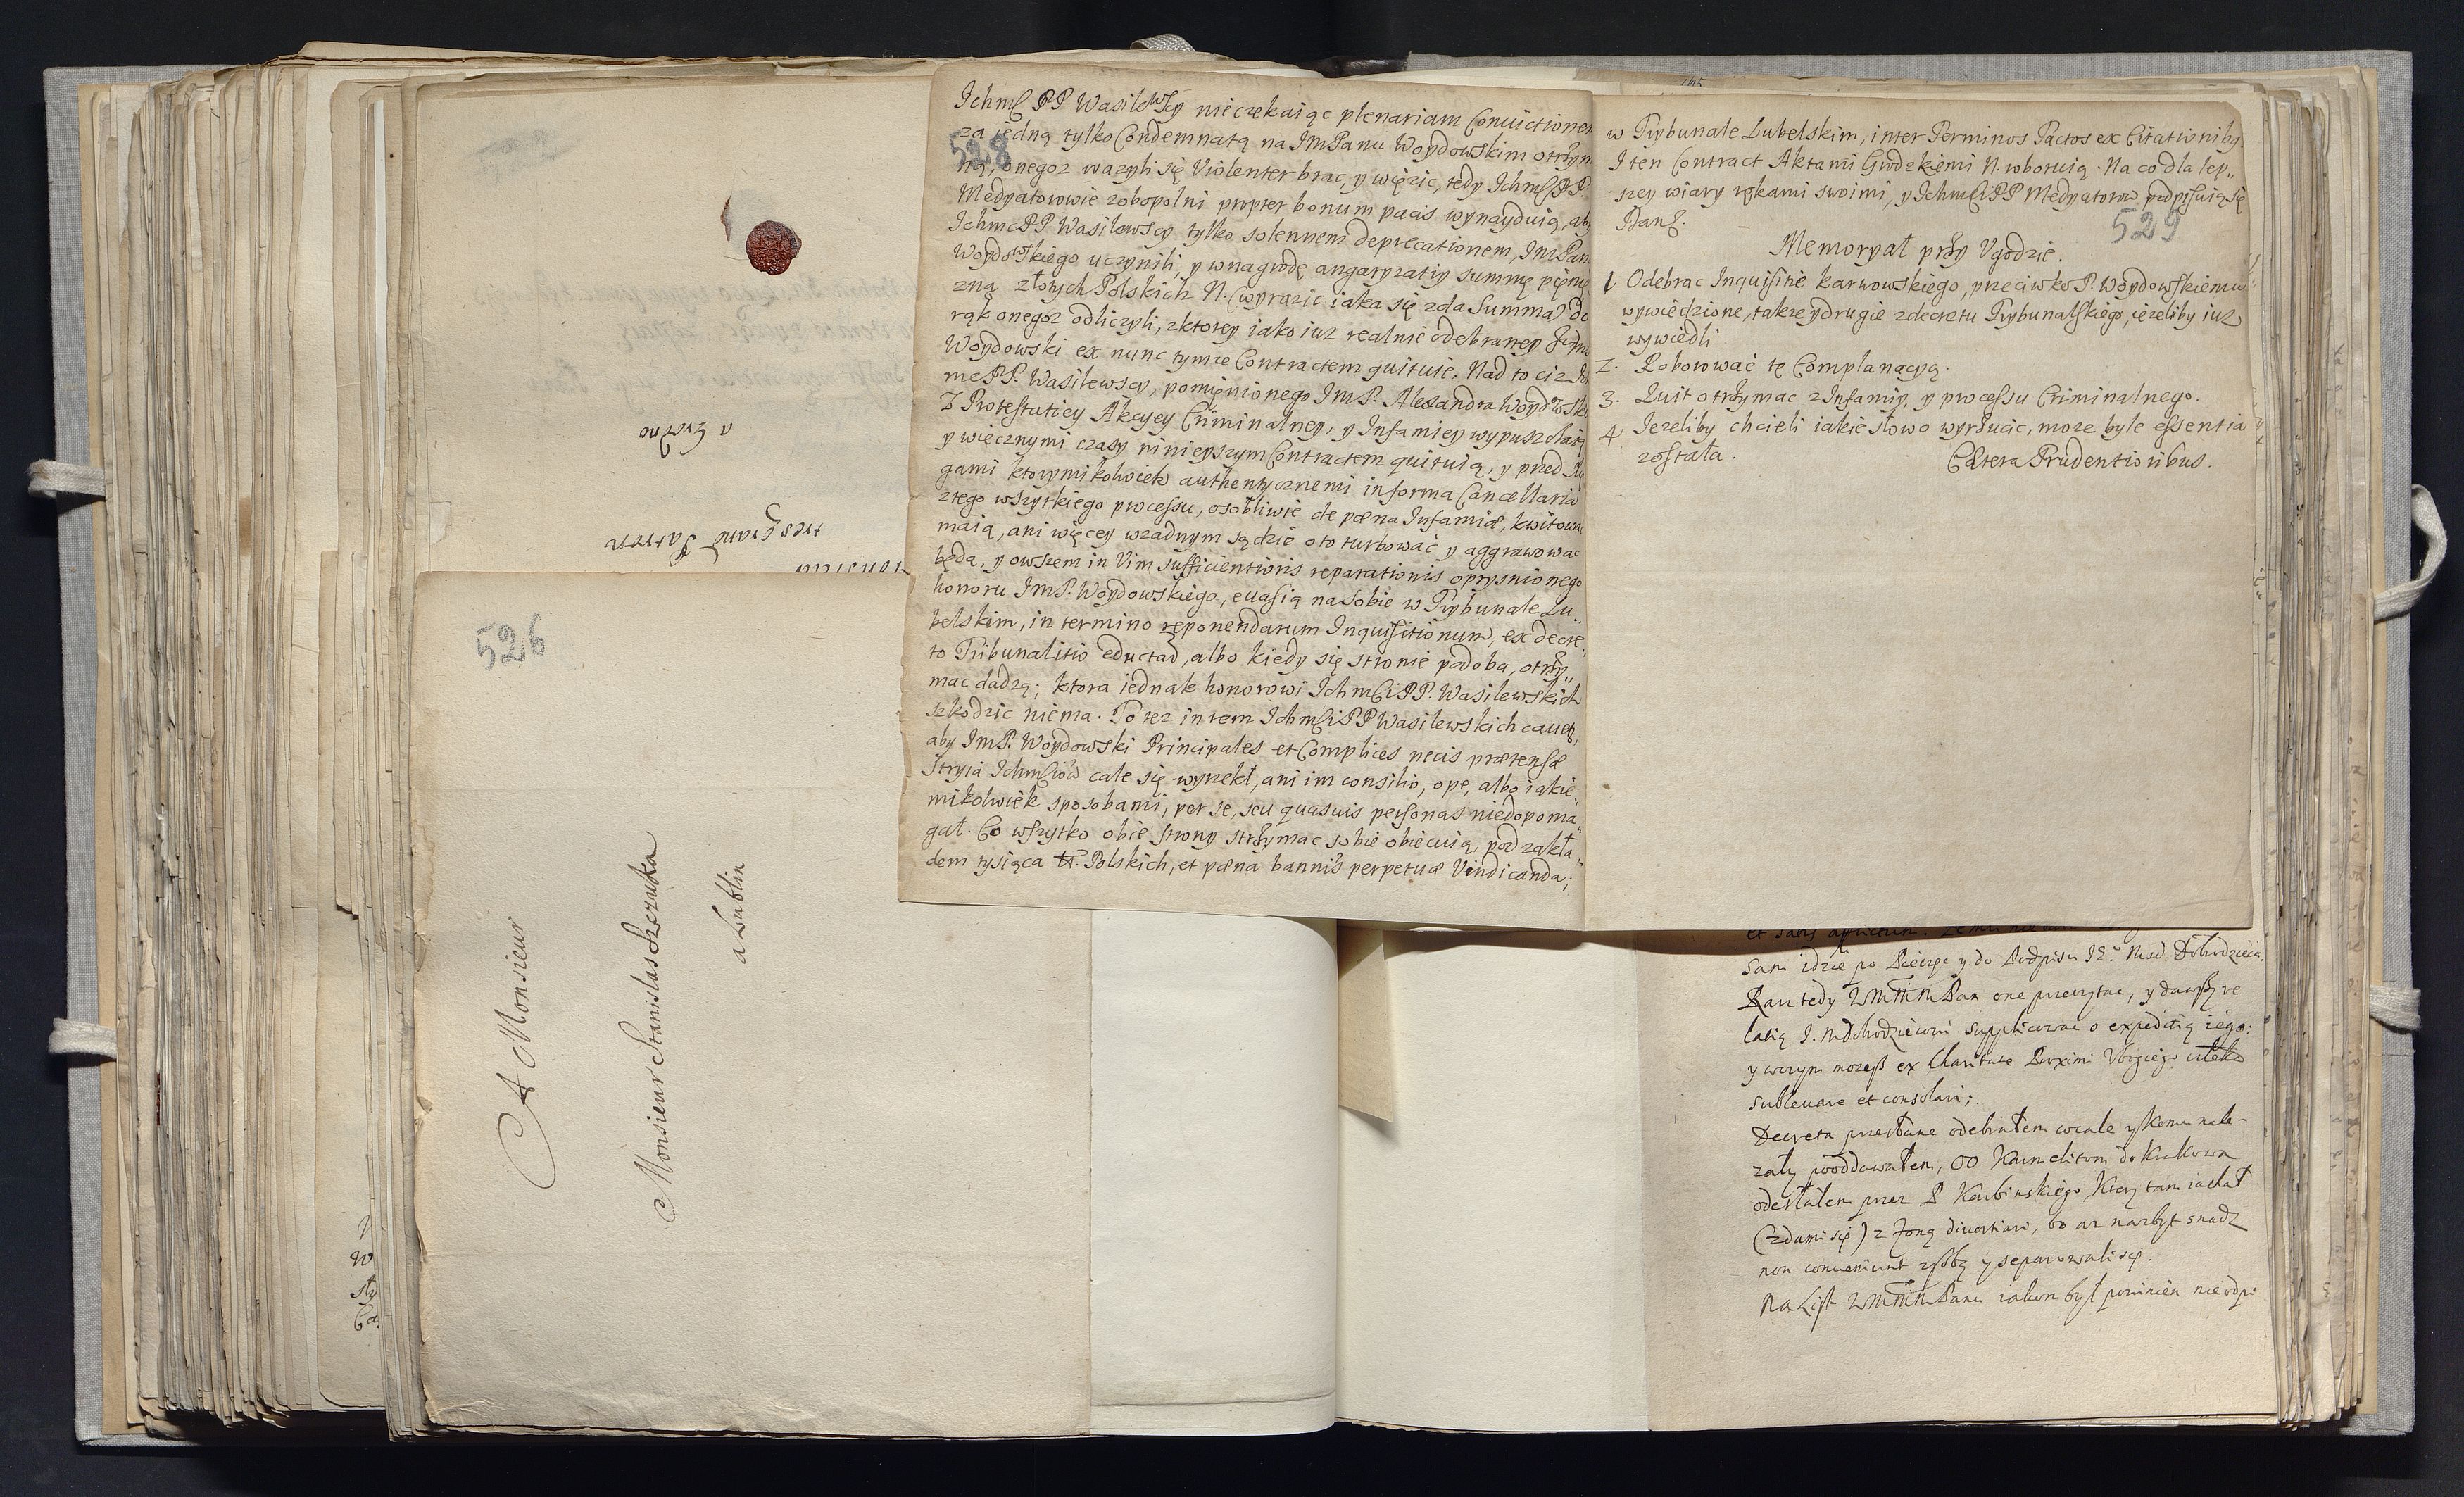 a Grodno
tres Grand
526
A Monsieur
Monsieur Stanislas Szczuka
a Lublin
Ichmć PP Wasilewscy nieczekaiąc plenariam Convictionem
za iedną tylko Condemnatą na ImPanu Woydowskim otrzym
528
ną, onegoz wazyli się Violenter brac, y więzic, tedy Ichmć PP.
Medyatorowie zobopolni propter bonum pacis wynayduią, aby
Ichmć PP Wasilewscy tylko solennem deprecationem, ImPan
Woydowskiego uczynili, y wnagrodę angaryzatiy summę pięnię
zną złotych Polskich N. (wyrazic iaka się zda Summa) do
rąk onegoz odliczyli, zktorey iako iuz realnie odebraney
Woydowski ex nunc tymze Contractem quituie. Nad to ciz
mć PP. Wasilewscy, pomięnionego ImP. Alexandra Woydowsk
Z Protestatiey Akcyey Criminalney, y Infamiey wypuszczaią
y wiecznymi czasy ninieyszym Contractem quituią, y przed
gami ktorymikolwiek authentycznemi in forma Cancellaria
ztego wszytkiego processu, osobliwie de pæna Infamiæ, kwitowac
maią, ani więcey wzadnym sądzie oto turbować y aggrawowac
będą, y owszem in Vim sufficientioris reparationis oprysnionego
honoru ImP. Woydowskiego, evasią na sobie w Trybunale Lu„
belskim, in termino reponendarum Inquisitionum, ex decre„
to Tribunalitio eductad, albo kiedy się stronie podoba, otrzy„
mac dadzą; ktora iednak honorowi IchmćiPP. Wasilewskich
szkodzic niema. To tez intem IchmćiPP Wasilewskich cavet,
aby ImP. Woydowski Principales et Complices necis prætensæ
Stryia Ichmćiow cale się wyrzekł, ani im consilio, ope, albo iakie„
mikolwiek sposobami, per se, seu quasuis personas niedopoma„
gał. Co wszytko obie strony strzymac sobie obiecuią, pod zakła„
dem tysiąca tt. Polskich, et pæna bannis perpetuæ Vindicanda;
w Trybunale Lubelskim, inter Terminos Tactos ex Citationiby
I ten Contract Aktami Grodzkiemi N. woboruią. Na co dla lep„
szey wiary rękami swoimi, y IchmćiPP Medyatorow, podpisuią się
Dany.
529
Memoryał przy Ugodzie.
1 Odebrac Inquisitie Karwowskiego, przeciwko P. Woydowskiemu
wywiedzione, takzeydrugie zdecretu Trybunalskiego, iezeliby iuz
wywiedli
2. Roborować tę Complanacyą.
3. Quit otrzymac zInfamiy, y processu Criminalnego.
4 Iezeliby chcieli iakie słowo wyrzucic, moze byle essentia
została.
Cætera Prudentioribus.
sam idzie po Pięczęc y do Podpisu
Racz tedy WMMM Pan one przeczytac, y dawszy re
latią supplicowac o expeditią iego;
y wczym mozesz ex Charitate Proximi Ubogiego
sublevare et consolari;.
Decreta przesłane odebrałem wcale yskomu nale-
zały pooddawałem, OO Karmelitom do Krakowa
odesłałem przez P Karbinskiego, Ktory tam iachał
(zdamisię) z Zoną divortiare, bo az nazbyt snadz
non conveniunt zsobą y separowali się.
Na List WMMM Pana iakom był powinien nieodpi